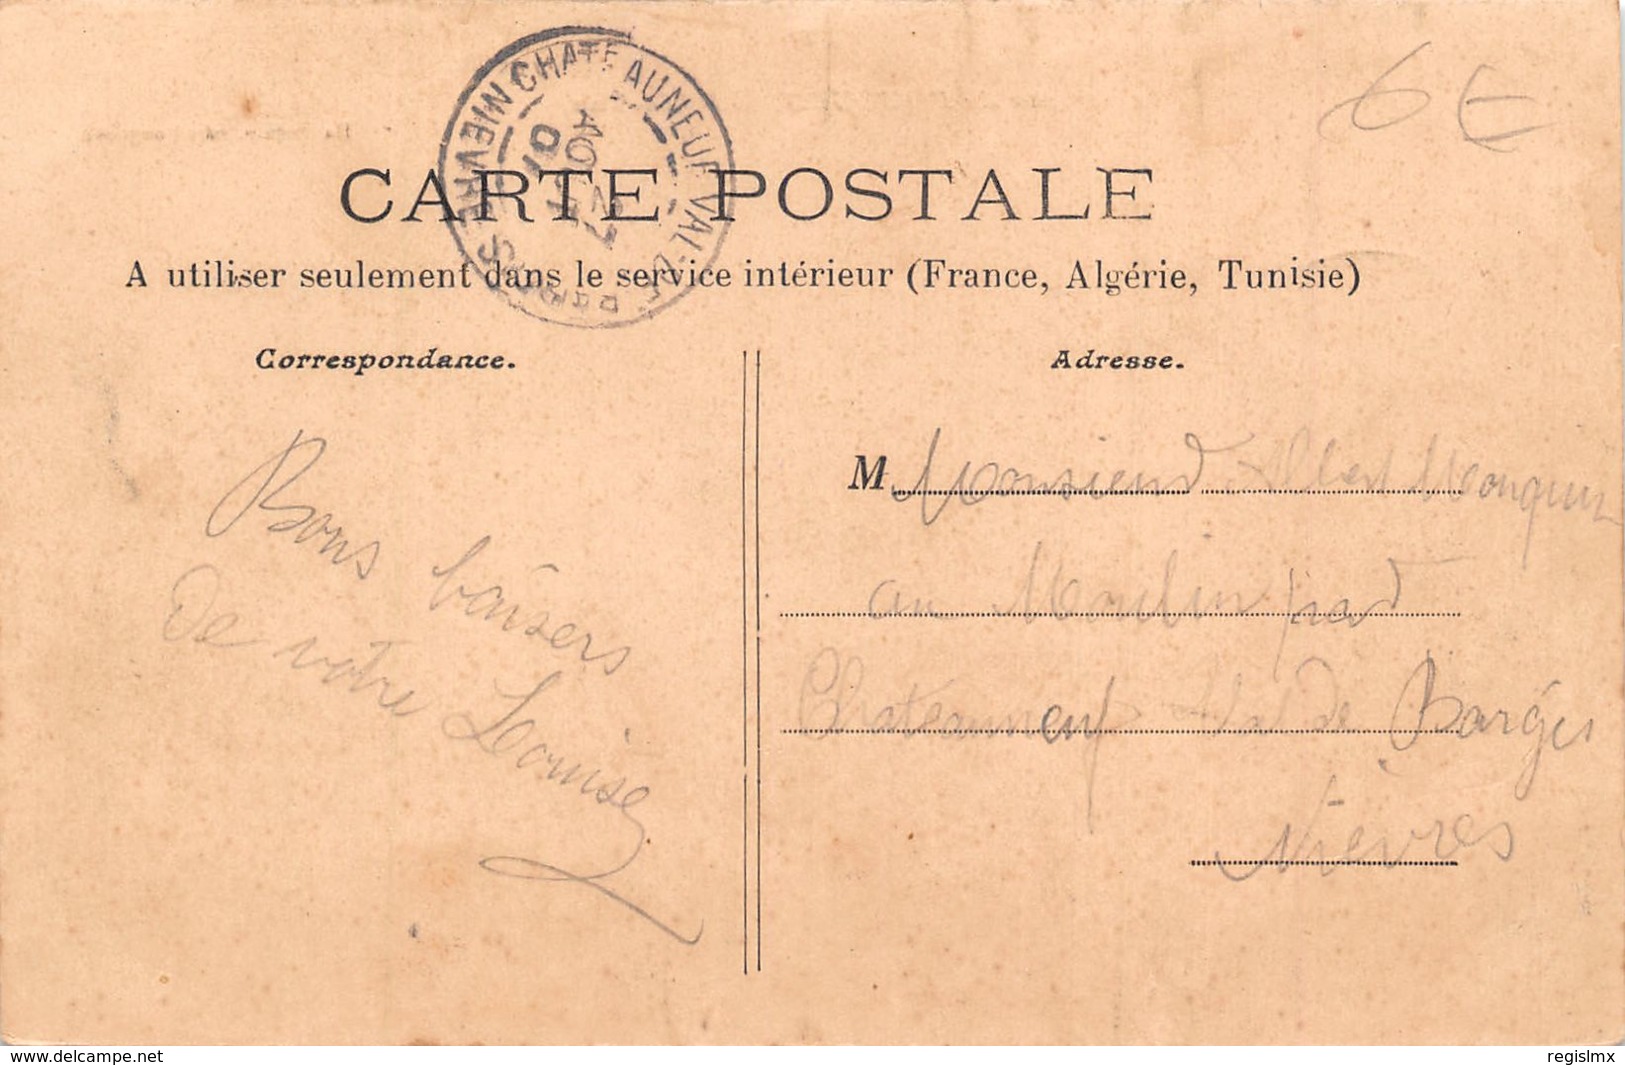 6 €
CHATEAUNEUF VAL DE BARGIS
NIEVRE
CARTE POSTALE
A utiliser seulement dans le service intérieur (France, Algérie, Tunisie)
Correspondance.
Bons baisers
De votre Louise
Adresse.
M Monsieur Albert Mouquin
au Moulin
Chateauneuf Val de Bargis
Nièvres
www.delcampe.net
regislmx